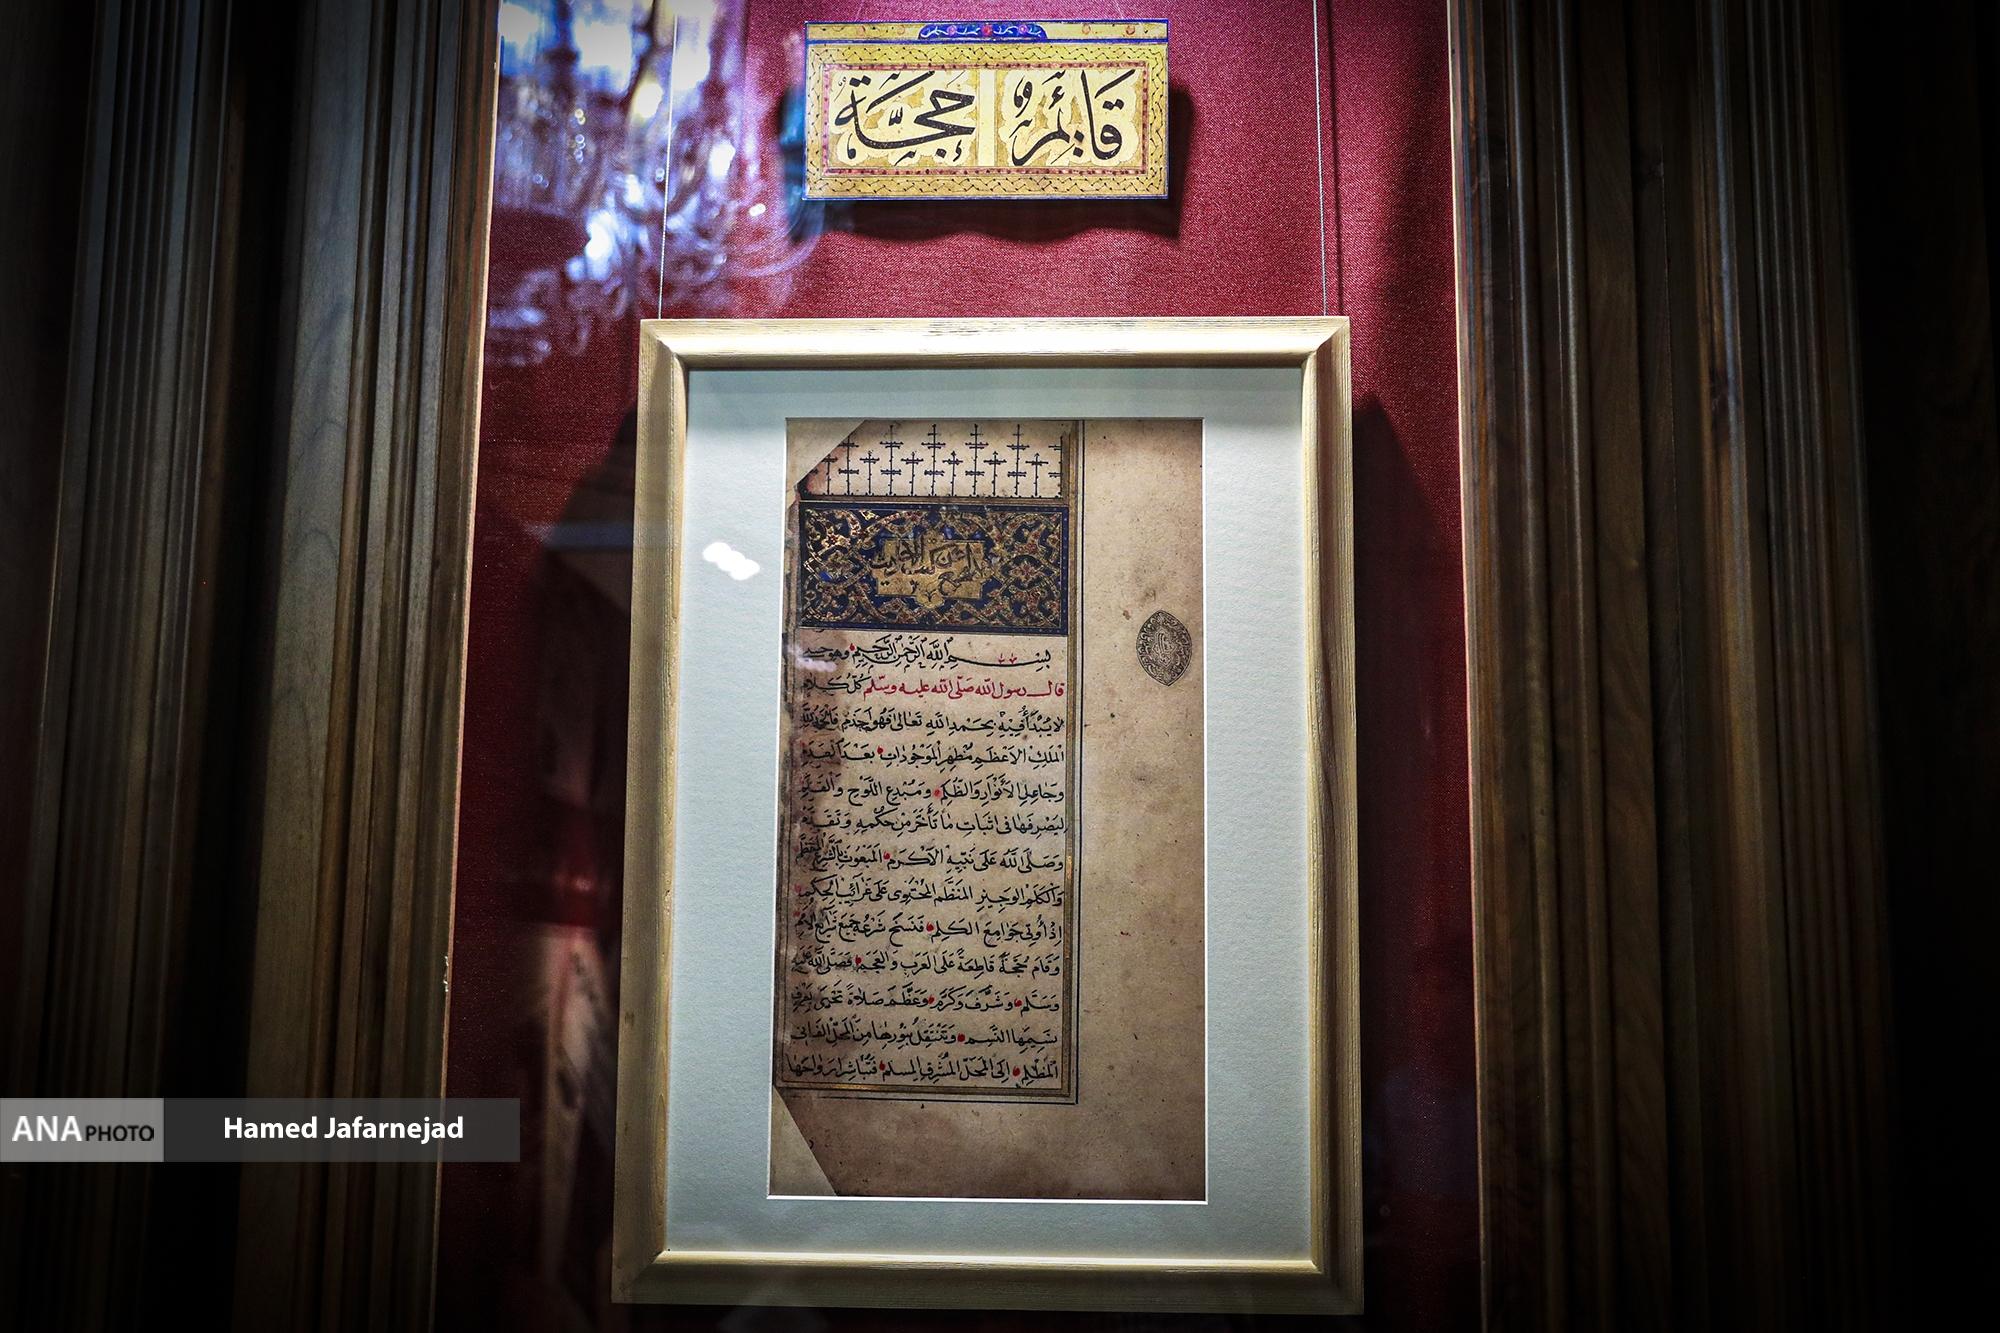 قائم حجة
بسم الله الرحمن الرحيم وهو حسبي
قال رسول الله صلى الله عليه وسلم كل كلام
لا يبدأ فيه بحمد الله تعالى فهو اجذم فالحمد لله
الملك الاعظم مظهر الموجودات بعد العدم
وجاعل الأنوار والظلم ومبدع اللوح والقلم
ليصرفها في اثبات ما تأخر من حكمه وتقدم
وصلى الله على نبيه الاكرم المبعوث بالشرع المعظم
والكلم الوجيز المنظم المحتوى على غرائب الحكم
إذ أوتي جوامع الكلم فنسخ شرعه جميع شرائع الامم
وقام حجة قاطعة على العرب والعجم فصلى الله عليه
وسلم وشرف وكرم وعظم صلاة تحيى بعرف
نسيمها النسم وتنتقل بنورها من المحل الفاني
المظلم الى المحل المشرق المسلم فتباشر ارواحها
ANA PHOTO
Hamed Jafarnejad